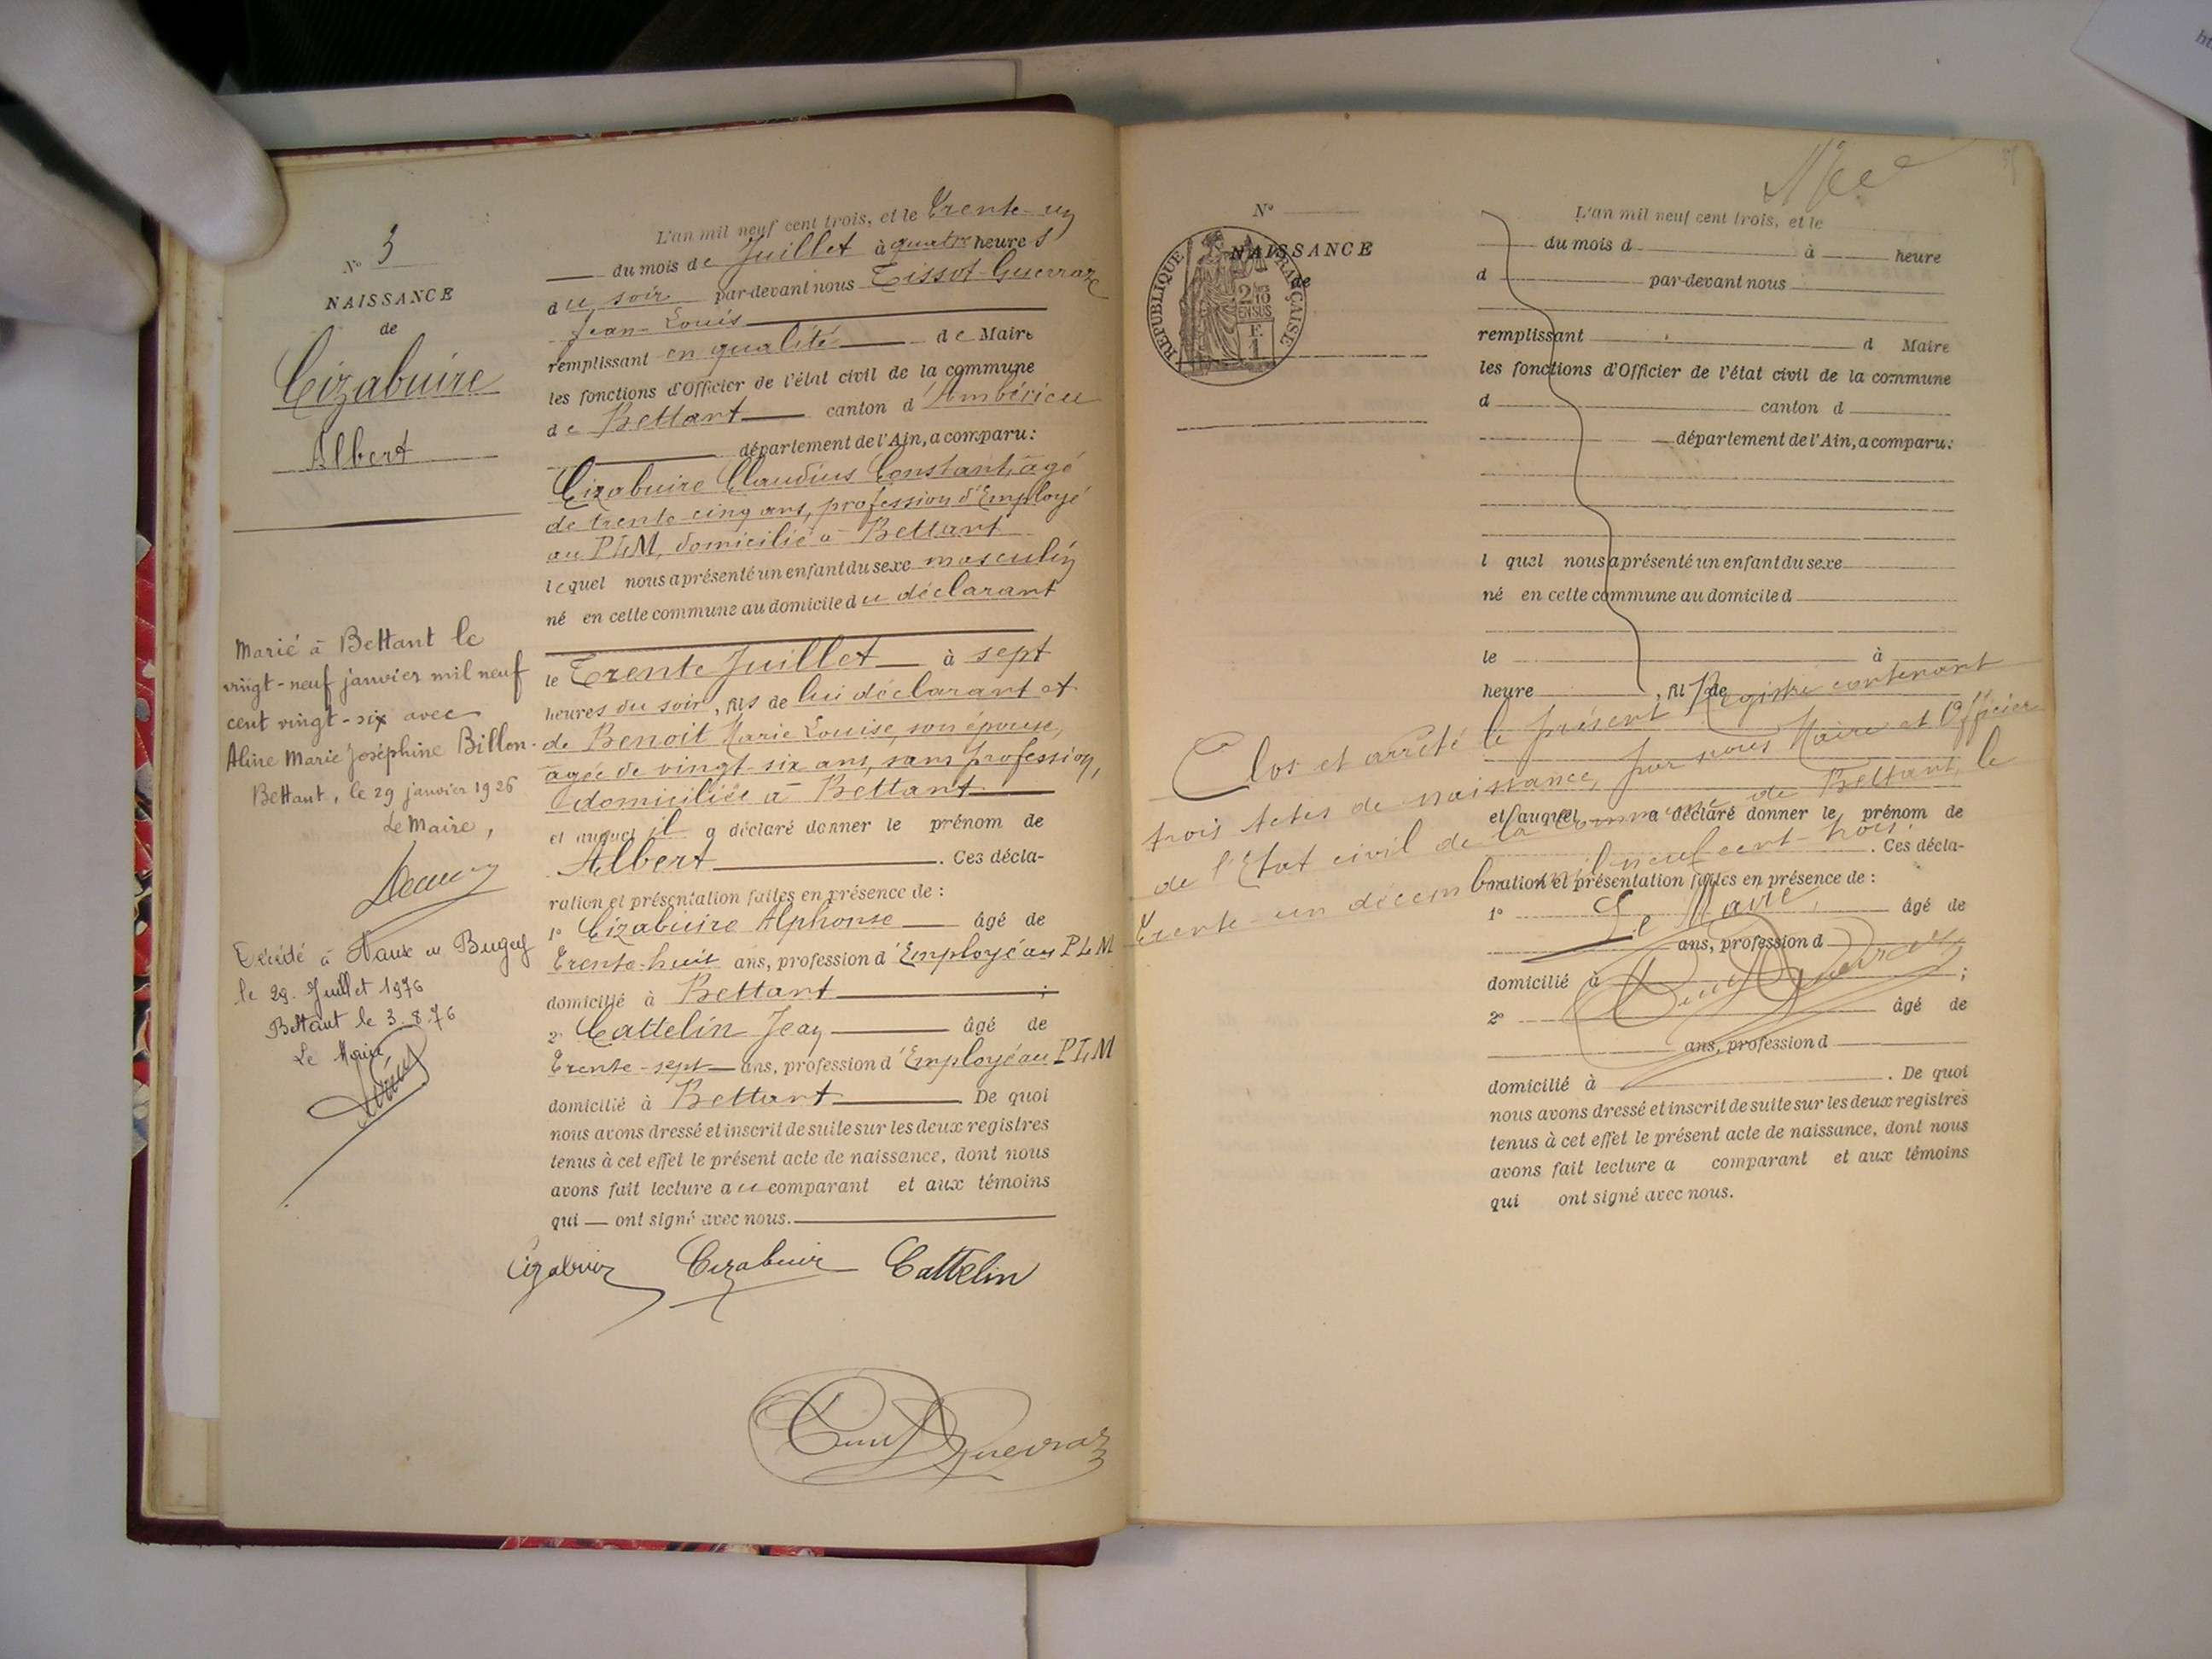 N° 3
NAISSANCE
de
Cizabuire
Albert
Marié à Bettant le
vingt-neuf janvier mil neuf
cent vingt-six avec
Aline Marie Joséphine Billon.
Bettant, le 29 janvier 1926
Le Maire,
Décédé à Vaux en Bugey
le 29 Juillet 1976
Bettant le 3.8.76
Le Maire
L'an mil neuf cent trois, et le trente-un
du mois de Juillet à quatre heures
du soir par-devant nous Tissot-Guerraz
Jean-Louis
remplissant en qualité de Maire
les fonctions d'Officier de l'état civil de la commune
de Bettant canton d'Ambérieu
département de l'Ain, a comparu:
Cizabuire Claudius Constant, âgé
de trente cinq ans, profession d'Employé
au PLM, domicilié à Bettant
lequel nous a présenté un enfant du sexe masculin
né en cette commune au domicile du déclarant
le Trente Juillet à sept
heures du soir, fils de lui déclarant et
de Benoit Marie Louise, son épouse,
agée de vingt-six ans, sans profession,
domiciliée à Bettant
et auquel il a déclaré donner le prénom de
Albert. Ces décla-
ration et présentation faites en présence de :
1° Cizabuire Alphonse âgé de
Trente-huit ans, profession d'Employé au PLM
domicilié à Bettant ;
2° Cattelin Jean âgé de
Trente-sept ans, profession d'Employé au PLM
domicilié à Bettant De quoi
nous avons dressé et inscrit de suite sur les deux registres
tenus à cet effet le présent acte de naissance, dont nous
avons fait lecture au comparant et aux témoins
qui — ont signé avec nous.
Cizabuire Cizabuire Cattelin
N°
NAISSANCE
de
REPUBLIQUE FRANÇAISE
2/10
EN SUS
F.
1
L'an mil neuf cent trois, et le
du mois d à heure
d par-devant nous
remplissant d Maire
les fonctions d'Officier de l'état civil de la commune
d canton d
département de l'Ain, a comparu:
l quel nous a présenté un enfant du sexe
né en cette commune au domicile d
le à
heure , fil de
Clos et arrêté le présent Registre contenant
trois Actes de naissance, par nous Maire et Officier
de l'Etat civil de la Commune de Bettant, le
trente-un décembre mil neuf cent trois.
Le Maire,
et auquel a déclaré donner le prénom de
. Ces décla-
ration et présentation faites en présence de :
1° âgé de
ans, profession d
domicilié à ;
2° âgé de
ans, profession d
domicilié à . De quoi
nous avons dressé et inscrit de suite sur les deux registres
tenus à cet effet le présent acte de naissance, dont nous
avons fait lecture a comparant et aux témoins
qui ont signé avec nous.